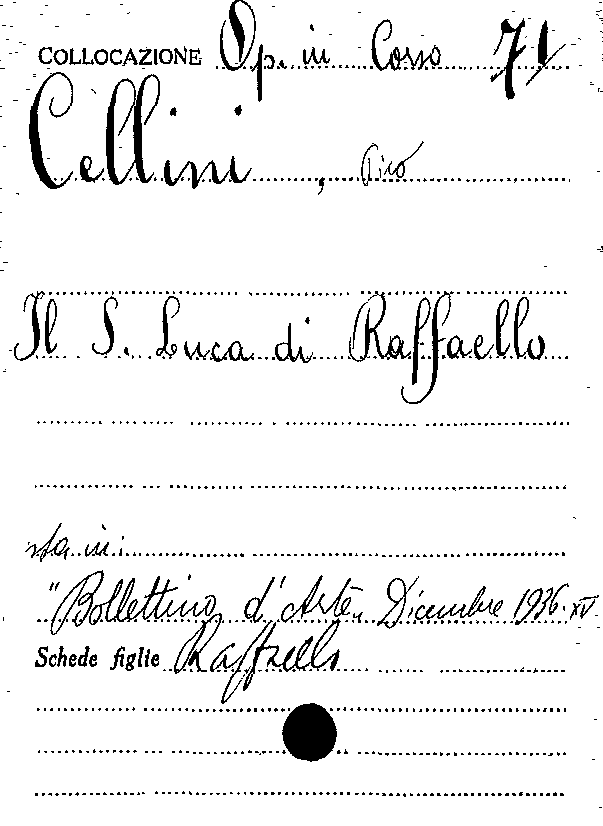 COLLOCAZIONE Op. in Corso 71
Cellini, Pico
Il S. Luca di Raffaello
sta in:
"Bollettino d'Arte" Dicembre 1936. XV
Schede figlie Raffaello